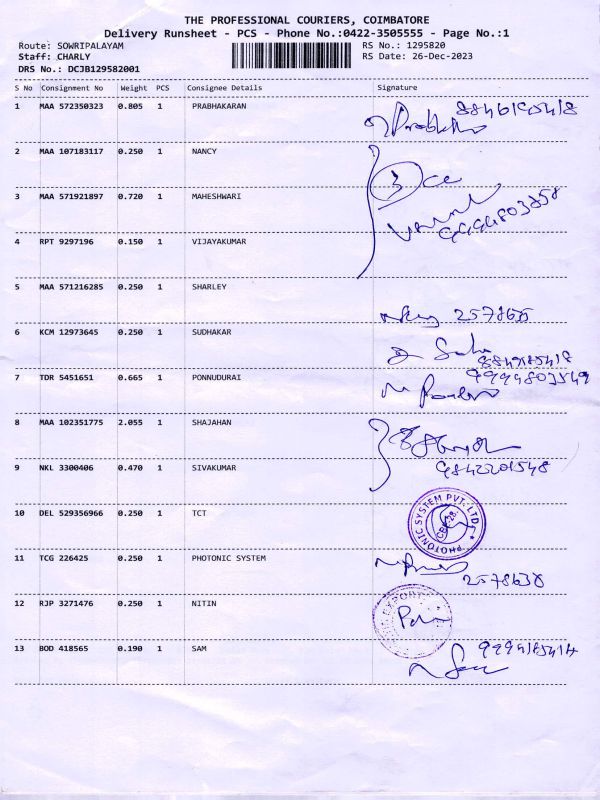 THE PROFESSIONAL COURIERS, COIMBATORE
Delivery Runsheet - PCS - Phone No.:0422-3505555 - Page No.:1
Route: SOWRIPALAYAM RS No.: 1295820
Staff: CHARLY RS Date: 26-Dec-2023
DRS No.: DCJB129582001
S No Consignment No Weight PCS Consignee Details Signature
1 MAA 572350323 0.805 1 PRABHAKARAN
2 MAA 107183117 0.250 1 NANCY
3 MAA 571921897 0.720 1 MAHESHWARI
4 RPT 9297196 0.150 1 VIJAYAKUMAR
5 MAA 571216285 0.250 1 SHARLEY
6 KCM 12973645 0.250 1 SUDHAKAR
7 TDR 5451651 0.665 1 PONNUDURAI
9994803549
8 MAA 102351775 2.055 1 SHAJAHAN
9 NKL 3300406 0.470 1 SIVAKUMAR
10 DEL 529356966 0.250 1 TCT
PHOTONIC SYSTEM PVT. LTD.
11 TCG 226425 0.250 1 PHOTONIC SYSTEM
2578638
12 RJP 3271476 0.250 1 NITIN
13 BOD 418565 0.190 1 SAM